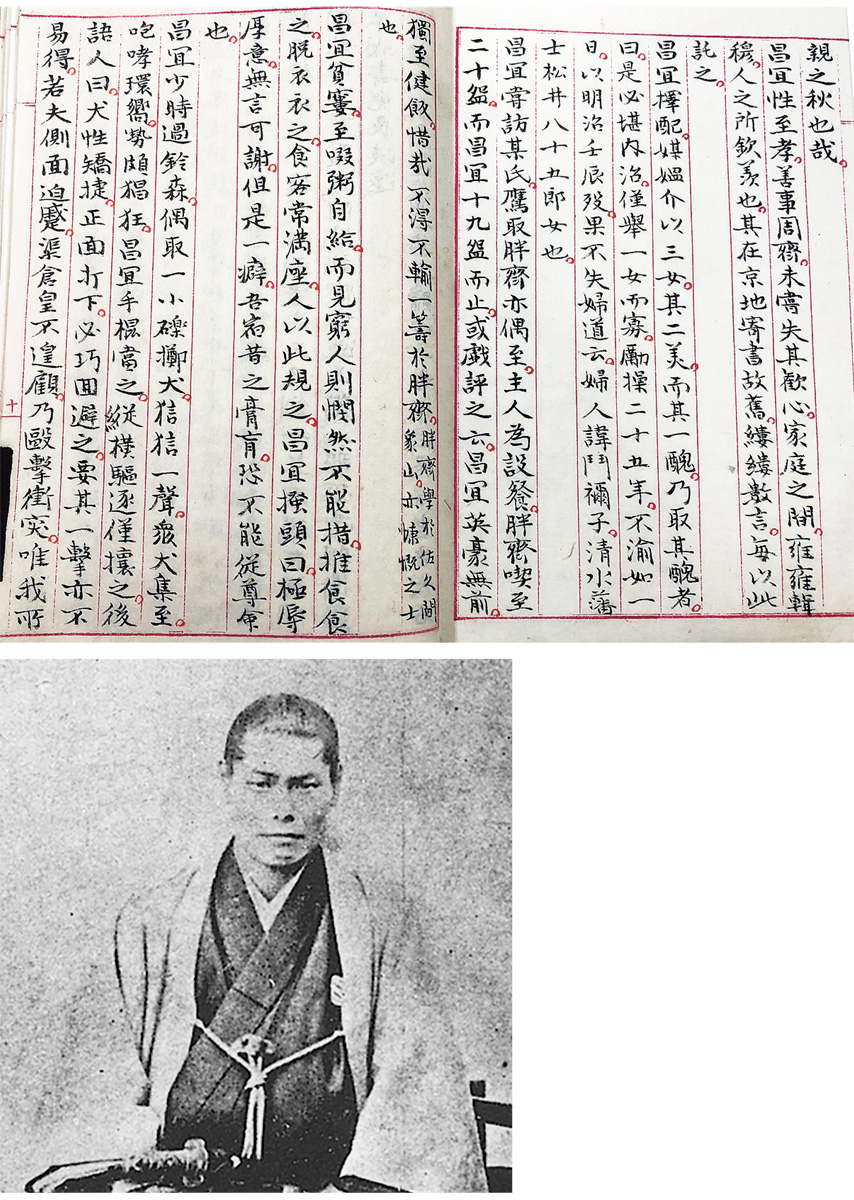 親之秋也哉
昌宜性至孝善事周齋未嘗失其歡心家庭之間雍雍輯
穆人之所欽羨也其在京地寄書故舊縷縷數言每以此
託之
昌宜擇配媒媼介以三女其二美而其一醜乃取其醜者
曰是必堪內治僅舉一女而寡勵操二十五年不渝如一
日以明治壬辰歿果不失婦道云婦人諱鬥禰子清水藩
士松井八十五郎女也
昌宜嘗訪某氏鷹取胖齋亦偶至主人為設餐胖齋喫至
二十盌而昌宜十九盌而止或戲評之云昌宜英豪無前
獨至健飯惜哉不得不輸一籌於胖齋胖齋學於佐久間
象山亦慷慨之士
也
昌宜貧窶至啜粥自給而見窮人則憫然不能措推食食
之脫衣衣之食客常滿座人以此規之昌宜搔頭曰極辱
厚意無言可謝但是一癖吾宿昔之膏肓恐不能從尊命
也
昌宜少時過鈴森偶取一小礫擲犬狺狺一聲衆犬集至
咆哮環嚮勢頗猖狂昌宜手棍當之縱橫驅逐僅攘之後
語人曰犬性矯捷正面打下必巧回避之要其一擊亦不
易得若夫側面迫蹙渠倉皇不遑顧乃毆擊衝突唯我所
十